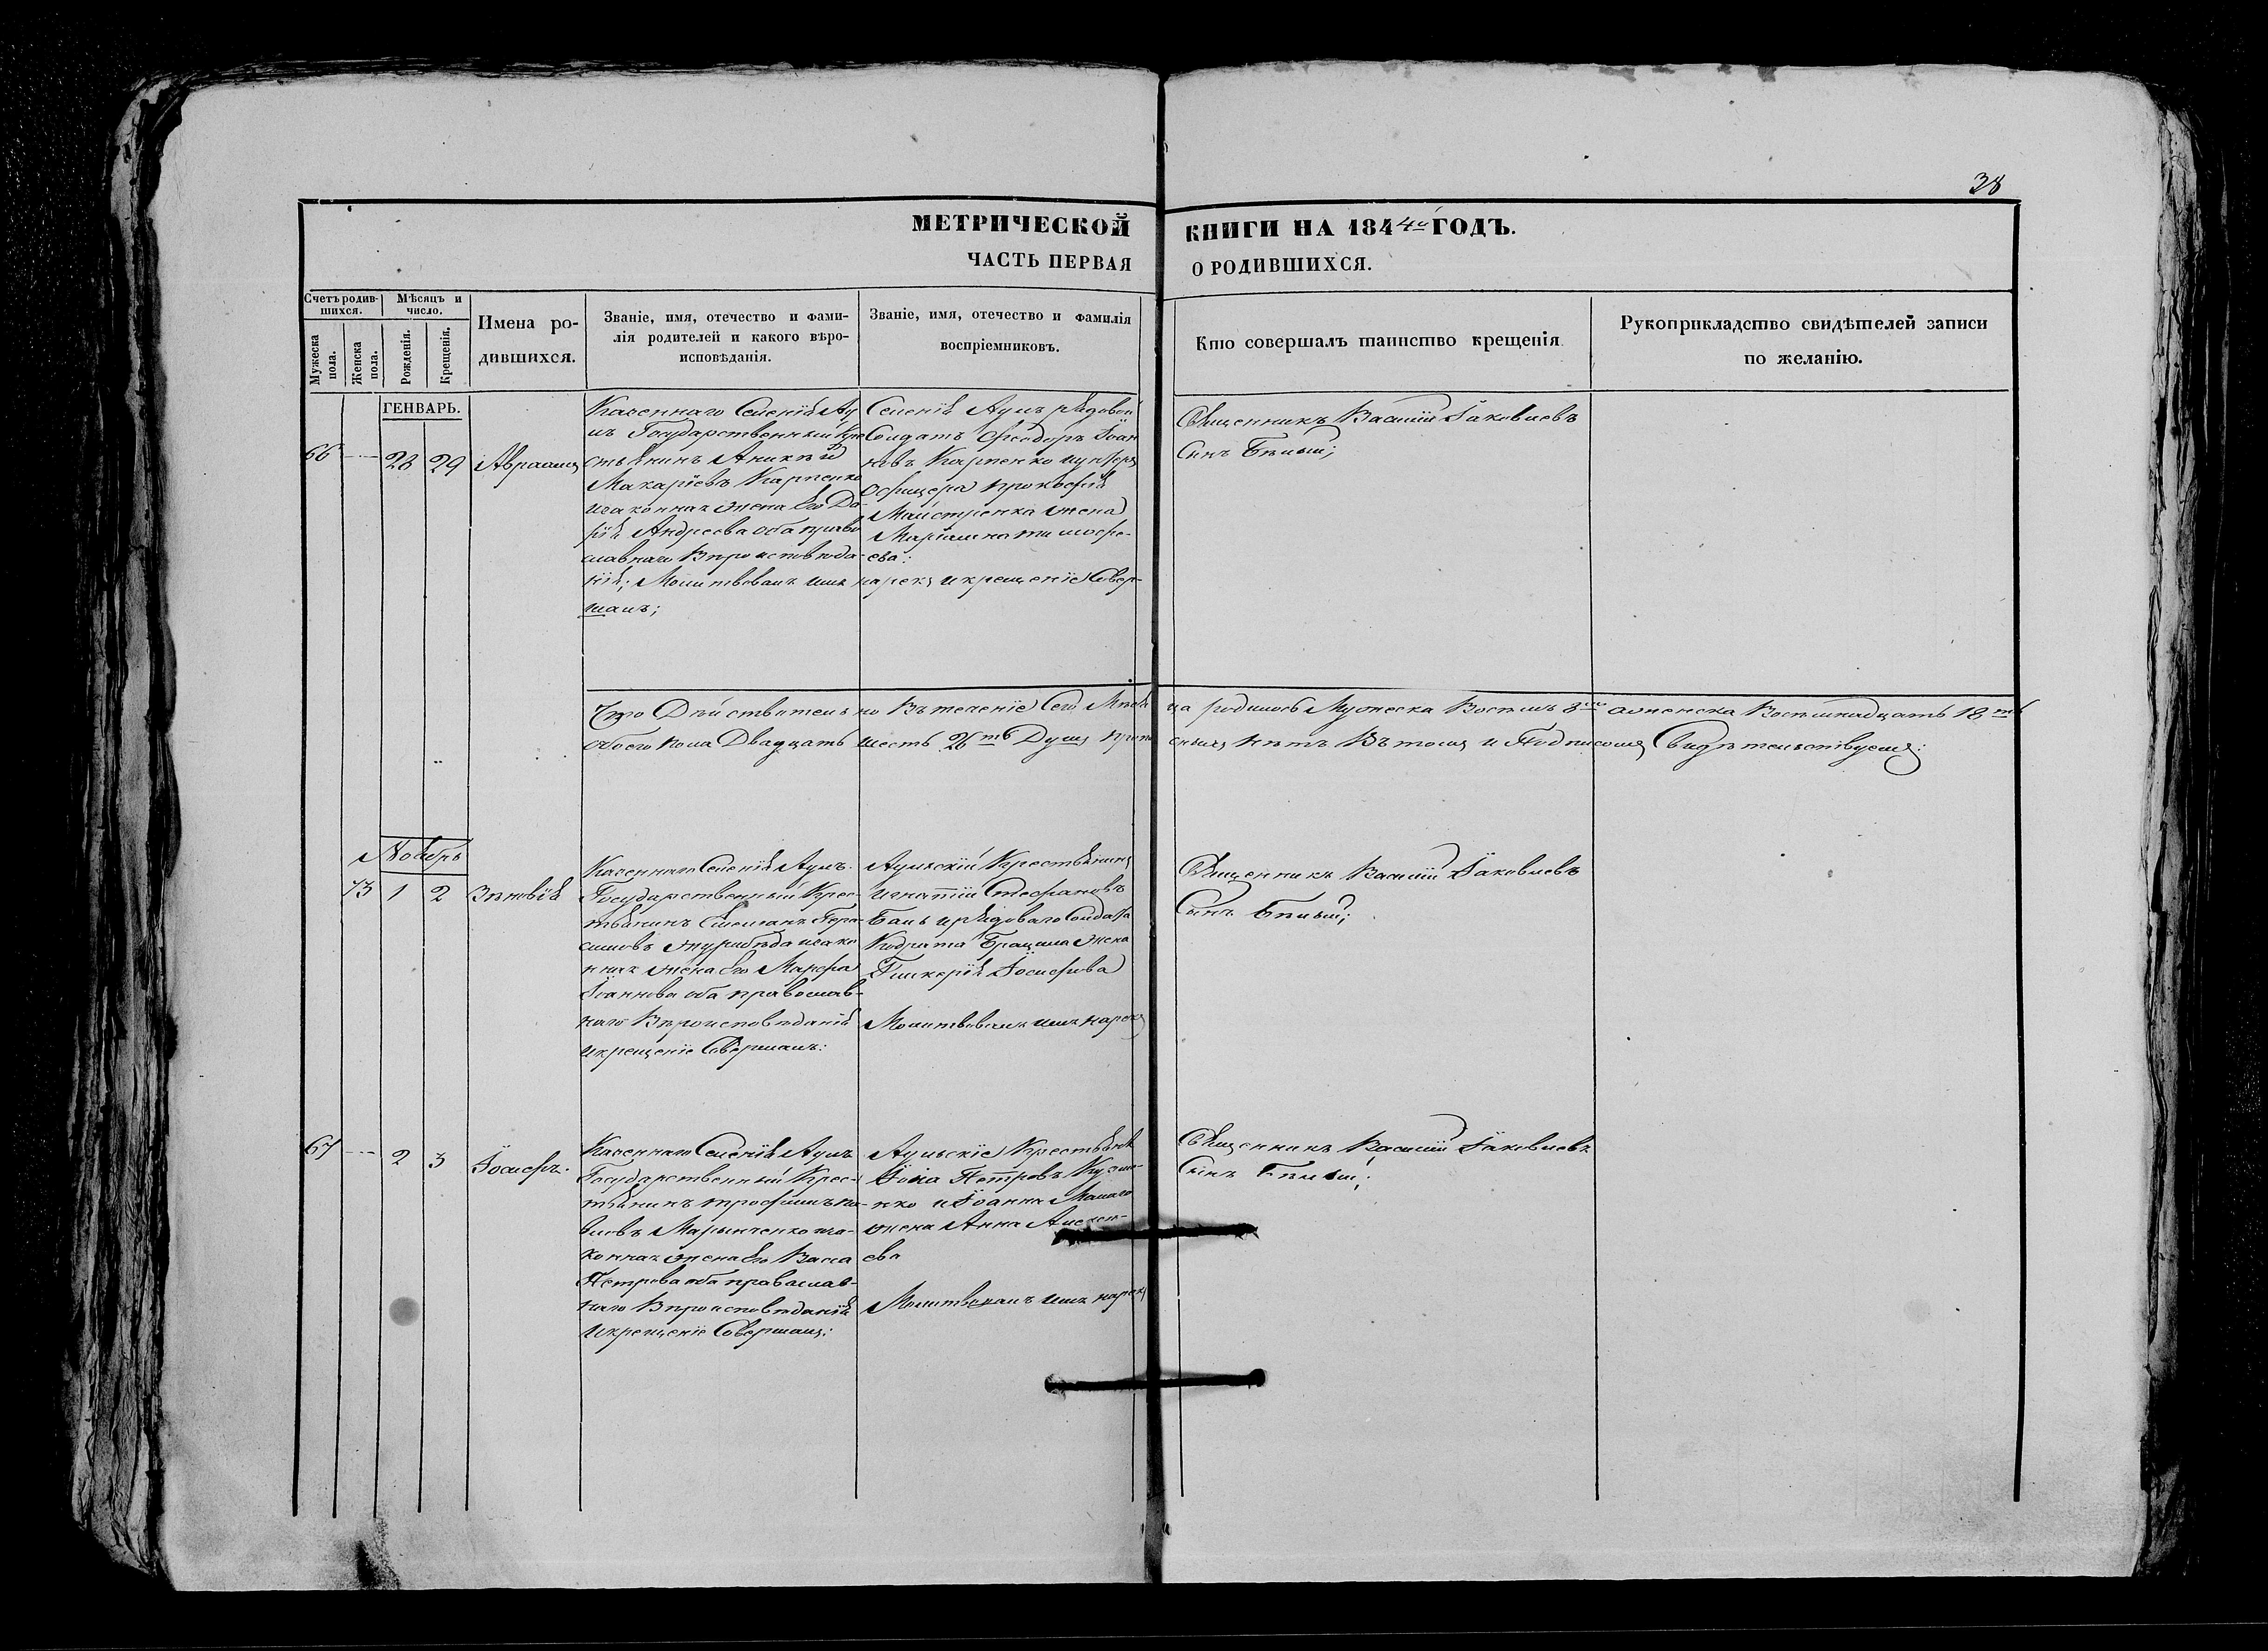 38
МЕТРИЧЕСКОЙ КНИГИ НА 1844й ГОДЪ.
ЧАСТЬ ПЕРВАЯ О РОДИВШИХСЯ.
Счетъ родившихся.
Мужеска пола.
Женска пола.
Мѣсяцъ и число.
Рожденія.
Крещенія.
Имена родившихся.
Званіе, имя, отечество и фами-
лія родителей и какого вѣро-
исповѣданія.
Званіе, имя, отечество и фамилія
воспріемниковъ.
Кто совершалъ таинство крещенія.
Рукоприкладство свидѣтелей записи
по желанію.
ГЕНВАРЬ.
66 28 29 Авраамъ
Казеннаго Селенія Ау
лъ Государственный Кре
стьянинъ Аникѣй
Макаріевъ Карпенко
изаконная жена Его Да-
рія Андреева оба право
славнаго Вѣроисповѣда-
нія; Молитвовалъ имя нарекъ икрещеніе Совер-
шалъ;
Селенія Аулъ рядовой
Солдатъ Феодоръ Іоан
новъ Карпенко иунтеръ
Офицера Прокофія
Майстренка жена
Маріамна тимофе-
ева:
Священникъ Василій Іаковлевъ
Сынъ Бѣлый;
Что Дѣйствительно Въ теченіе Сего Мѣсяца родилось Мужеска Восемь 8 аженска Восемнадцать 18ть
обоего пола Двадцать шесть 26ть Душъ нѣтъ Въ томъ и Подписомъ Свидѣтельствуемъ:
Ноябрь
73 1 2 Зѣновія
Казеннаго Селенія Аулъ
Государственный Крес-
тьянинъ Стефанъ Гера-
симовъ изако
нная жена Его Марфа
Іоаннова оба православ-
наго Вѣроисповѣданія
икрещеніе Совершалъ:
Аульскій Крестьянинъ
Игнатій Стефановъ
Баль ирядоваго Солдата
Кодрата Брацила жена
Гликерія Іосифова
Молитвовалъ имя нарекъ
Священникъ Василій Іаковлевъ
Сынъ Бѣлый;
67 2 3 Іосифъ.
Казеннаго Селенія Аулъ
Государственный Крес-
тьянинъ трофимъ Па-
вловъ Марынченко иза-
конная жена Его Васса
Петрова оба православ-
наго Вѣроисповѣданія
икрещеніе Совершалъ:
Аульскіе Крестьяне
Іона Петровъ Кузме-
нко и Іоанна Малаго
жена Анна Алексе-
ева
Молитвовалъ имя нарекъ
Священникъ Василій Іаковлевъ
Сынъ Бѣлый;